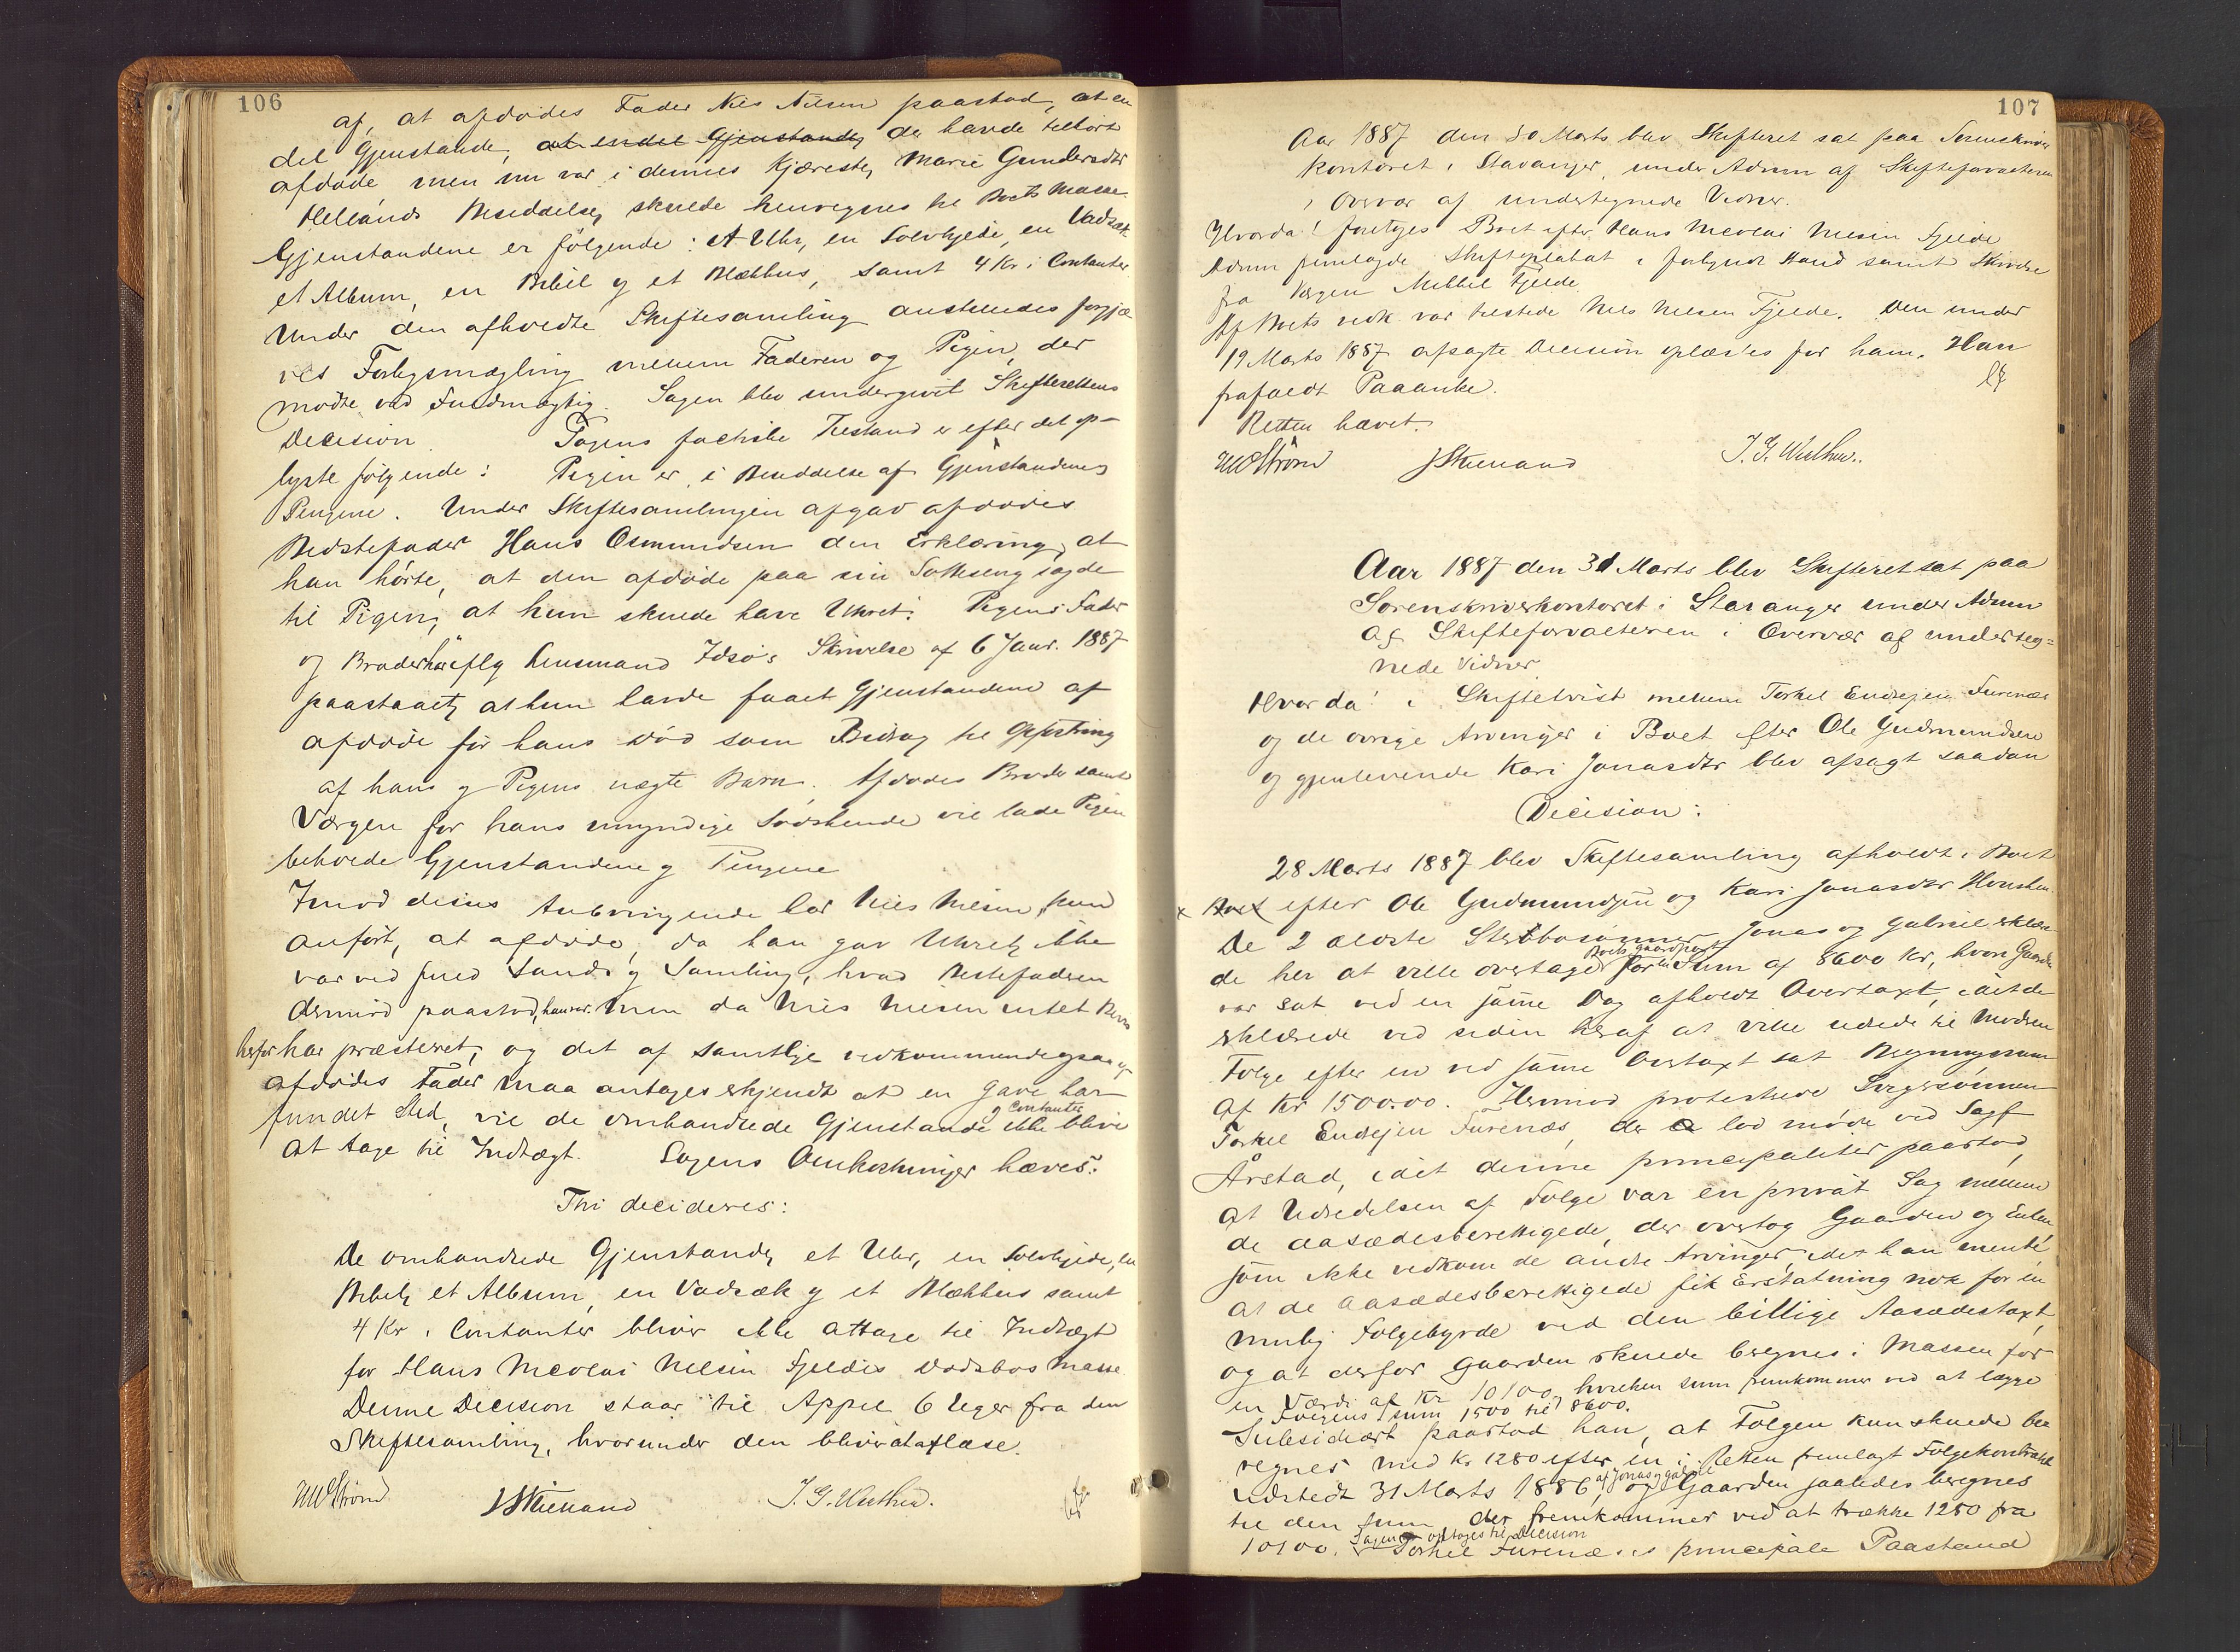 106
af, at afdødes Fader Nils Nilsen paastod, at en
del Gjenstande, at endel Gjenstande, der havde tilhørt
afdøde men nu var i dennes Kjæreste, Marie Gundersdtr
Hellands Besiddelse, skulde henregnes til Boets Masse.
Gjenstandene er følgende: Et Uhr, en Sølvkjede, en Vadsæk
et Album, en Bibel og et Blækhus, samt 4 Kr i Contanter
Under den afholdte Skiftesamling anstilledes forgjæ
ves Forligsmægling mellem Faderen og Pigen, der
mødte ved Fuldmægtig. Sagen blev undergivet Skifterettens
Decision Sagens factiske Tilstand er efter det op-
lyste følgende: Pigen er i Besiddelse af Gjenstandene og
Pengene. Under Skiftesamlingen afgav afdødes
Bedstefader Hans Osmundsen den Erklæring, at
han hørte, at den afdøde paa sin Sotteseng sagde
til Pigen, at hun skulde have Uhret. Pigens Fader
og Broder har iflg Lensmand Idsøs Skrivelse af 6 Januar. 1887
paastaaet, at hun havde faaet Gjenstandene af
afdøde før hans Død som Bidrag til Opfostring
af hans og Pigens uægte Barn. Afdødes Broder samt
Værgen for hans umyndige Sødskende vil lade Pigen
beholde Gjenstandene og Pengene
Imod disses Anbringende har Nils Nilsen kun
anført, at afdøde, da han gav Uhret, ikke
var ved fuld Sands og Samling, hvad Bestefaderen
derimod paastod, han var. Men da Nils Nilsen intet Bevis
herfor har præsteret, og det af samtlige vedkommende ogsaa af
afdødes Fader maa antages erkjendt at en Gave har
fundet Sted, vil de omhandlede Gjenstande og Contanter ikke blive
at tage til Indtægt. Sagens Omkostninger hæves.
Thi decideres:
De omhandlede Gjenstande, et Uhr, en Sølvkjede, en
Bibel, et Album, en Vadsæk og et Blækhus samt
4 Kr i Contanter bliver ikke at tage til Indtægt
for Hans Nicolai Nilsen Fjeldes Dødsbos Masse
Denne Decision staar til Appel 6 Uger fra den
Skiftesamling, hvorunder den bliver at aflæse.
J. G. Wulhen.
107
Aar 1887 den 30 Marts blev Skifteret sat paa Sorenskriver
kontoret i Stavanger under Admn af Skifteforvalteren
i Overvær af undertegnede Vidner.
Hvorda! foretoges Boet efter Hans Nicolai Nilsen Fjelde
Admn fremlagde Skifteplakat i forkyndt Stand samt Skrivelse
fra Værgen Mikkel Fjelde.
Af Boets vedk. var tilstede Nils Nilsen Fjelde. Den under
19 Marts 1887 afsagte Decision oplæstes for ham. Han
frafaldt Paaanke.
Retten hævet.
J. G. Wulhen.
Aar 1887 den 31 Marts blev Skifteret sat paa
Sorenskriverkontoret i Stavanger under Admn
af Skifteforvalteren i Overvær af underteg=
nede Vidner
Hvorda! i Skiftetvist mellem Torkel Endresen Furenæs
og de øvrige Arvinger i Boet efter Ole Gudmundsen
og gjenlevende Kari Jonasdtr blev afsagt saadan
Decision:
28 Marts 1887 blev Skiftesamling afholdt i Boet
x Boet efter Ole Gudmundsen og Kari Jonasdtr
De 2 ældste Sterbbosønner Jonas og Gabriel erklære
de her at ville overtage Boets Gaardpart for en Sum af 8600 Kr, hvori Gaarden
var sat ved en samme Dag afholdt Overtaxt, idet de
erklærede ved siden heraf at ville udrede til Moderen
Folge efter en ved samme Overtaxt sat Beregningssum
af Kr 1500.00. Herimod protesterede Svigersønnen
Torkel Endresen Furenæs, der lod møde ved Sagf
Årstad, idet denne principaliter paastod,
at Udredelsen af Folge var en privat Sag mellem
de aasædesberettigede, der overtog Gaarden og Enken
som ikke vedkom de andre Arvinger, idet han mente
at de aasædesberettigede fik Erstatning nok for en
mulig Folgebyrde ved den billige Aasædestaxt,
og at derfor Gaarden skulde beregnes i Massen for
en Værdi af Kr 10100, hvilken sum fremkommer ved at lægge
Folgens sum 1500 til 8600.
Subsidiært paastod han, at Folgen kun skulde be
regnes med Kr 1280 efter en i Retten fremlagt Folgekontrakt
udstedt 31 Marts 1886, af Jonas og Gabriel og Gaarden saaledes beregnes
til den Sum der fremkommer ved at trække 1280 fra
10100. Sagen optages til Decision Torkel Furenæses principale Paastand